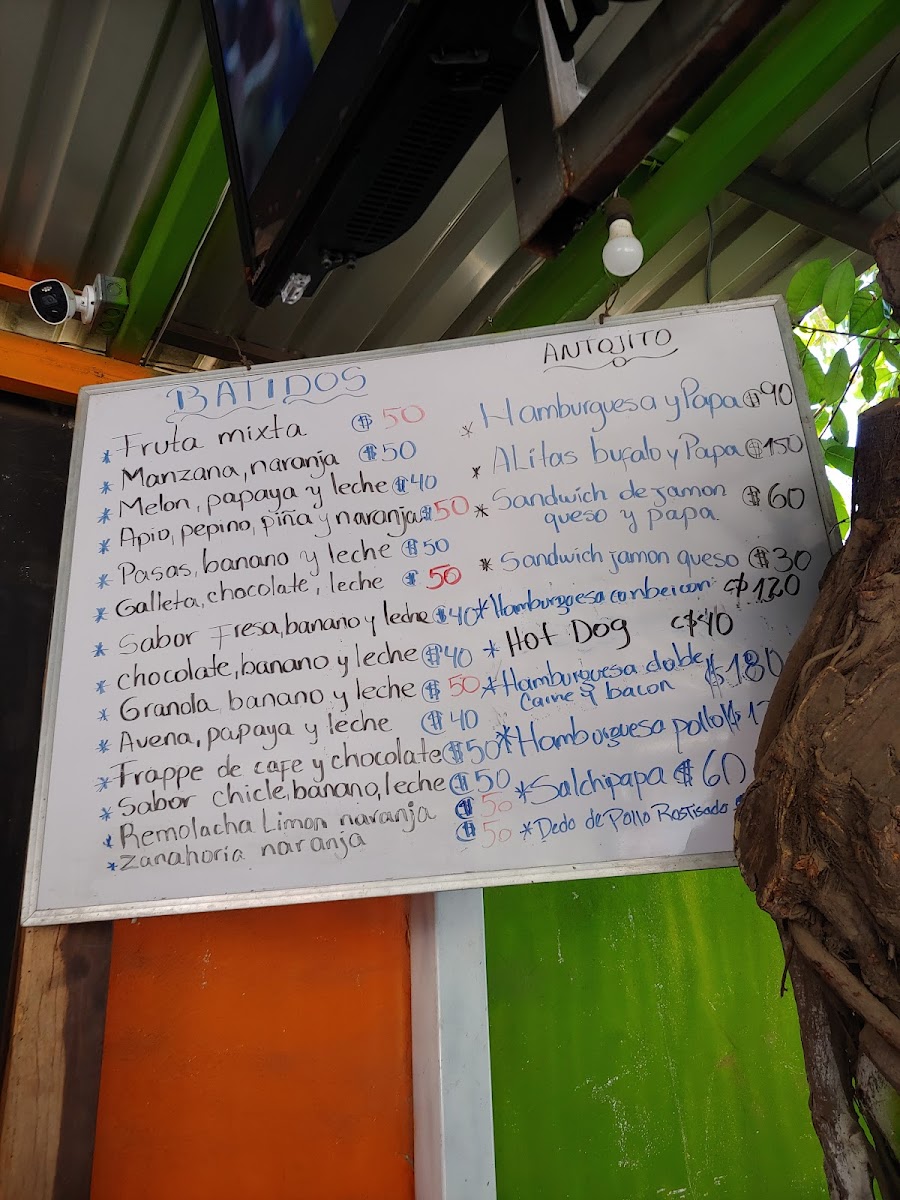 BATIDOS
* Fruta mixta $ 50
* Manzana, naranja $50
* Melon, papaya y leche $40
* Apio, pepino, piña y naranja $50
* Pasas, banano y leche $50
* Galleta, chocolate, leche $ 50
* Sabor Fresa, banano y leche $40
* chocolate, banano y leche $40
* Granola, banano y leche $ 50
* Avena, papaya y leche $40
* Frappe de cafe y chocolate $50
* Sabor chicle, banano, leche $50
* Remolacha Limon naranja $ 50
* Zanahoria naranja $ 50
ANTOJITO
* Hamburguesa y Papa $90
* ALitas bufalo y Papa $150
* Sandwich de jamon
queso y papa $60
* Sandwich jamon queso $30
* Hamburguesa con beicon C$120
* Hot Dog C$40
* Hamburguesa doble
carne y bacon $180
* Hamburguesa pollo
* Salchipapa $60
* Dedo de Pollo Rostisado